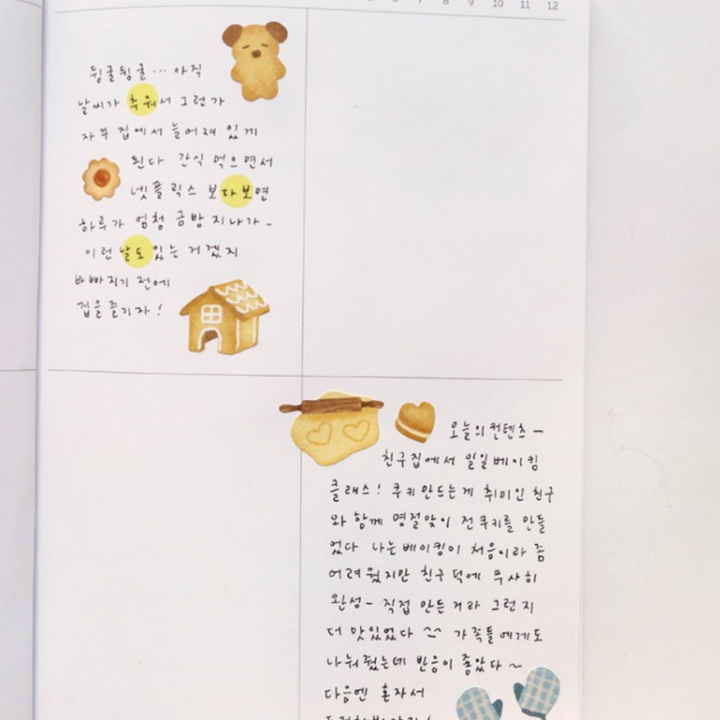 8 9 10 11 12
뒹굴뒹굴... 아직
날씨가 추워서 그런가
자꾸 집에서 늘어져 있게
된다 간식 먹으면서
넷플릭스 보다보면
하루가 엄청 금방 지나가~
이런 날도 있는 거겠지
바빠지기 전에
집을 즐기자!
오늘의 컨텐츠 -
친구집에서 일일베이킹
클래스! 쿠키 만드는게 취미인 친구
와 함께 명절맞이 전쿠키를 만들
었다 나는 베이킹이 처음이라 좀
어려웠지만 친구 덕에 무사히
완성- 직접 만든거라 그런지
더 맛있었다 ^^ 가족들에게도
나눠줬는데 반응이 좋았다~
다음엔 혼자서